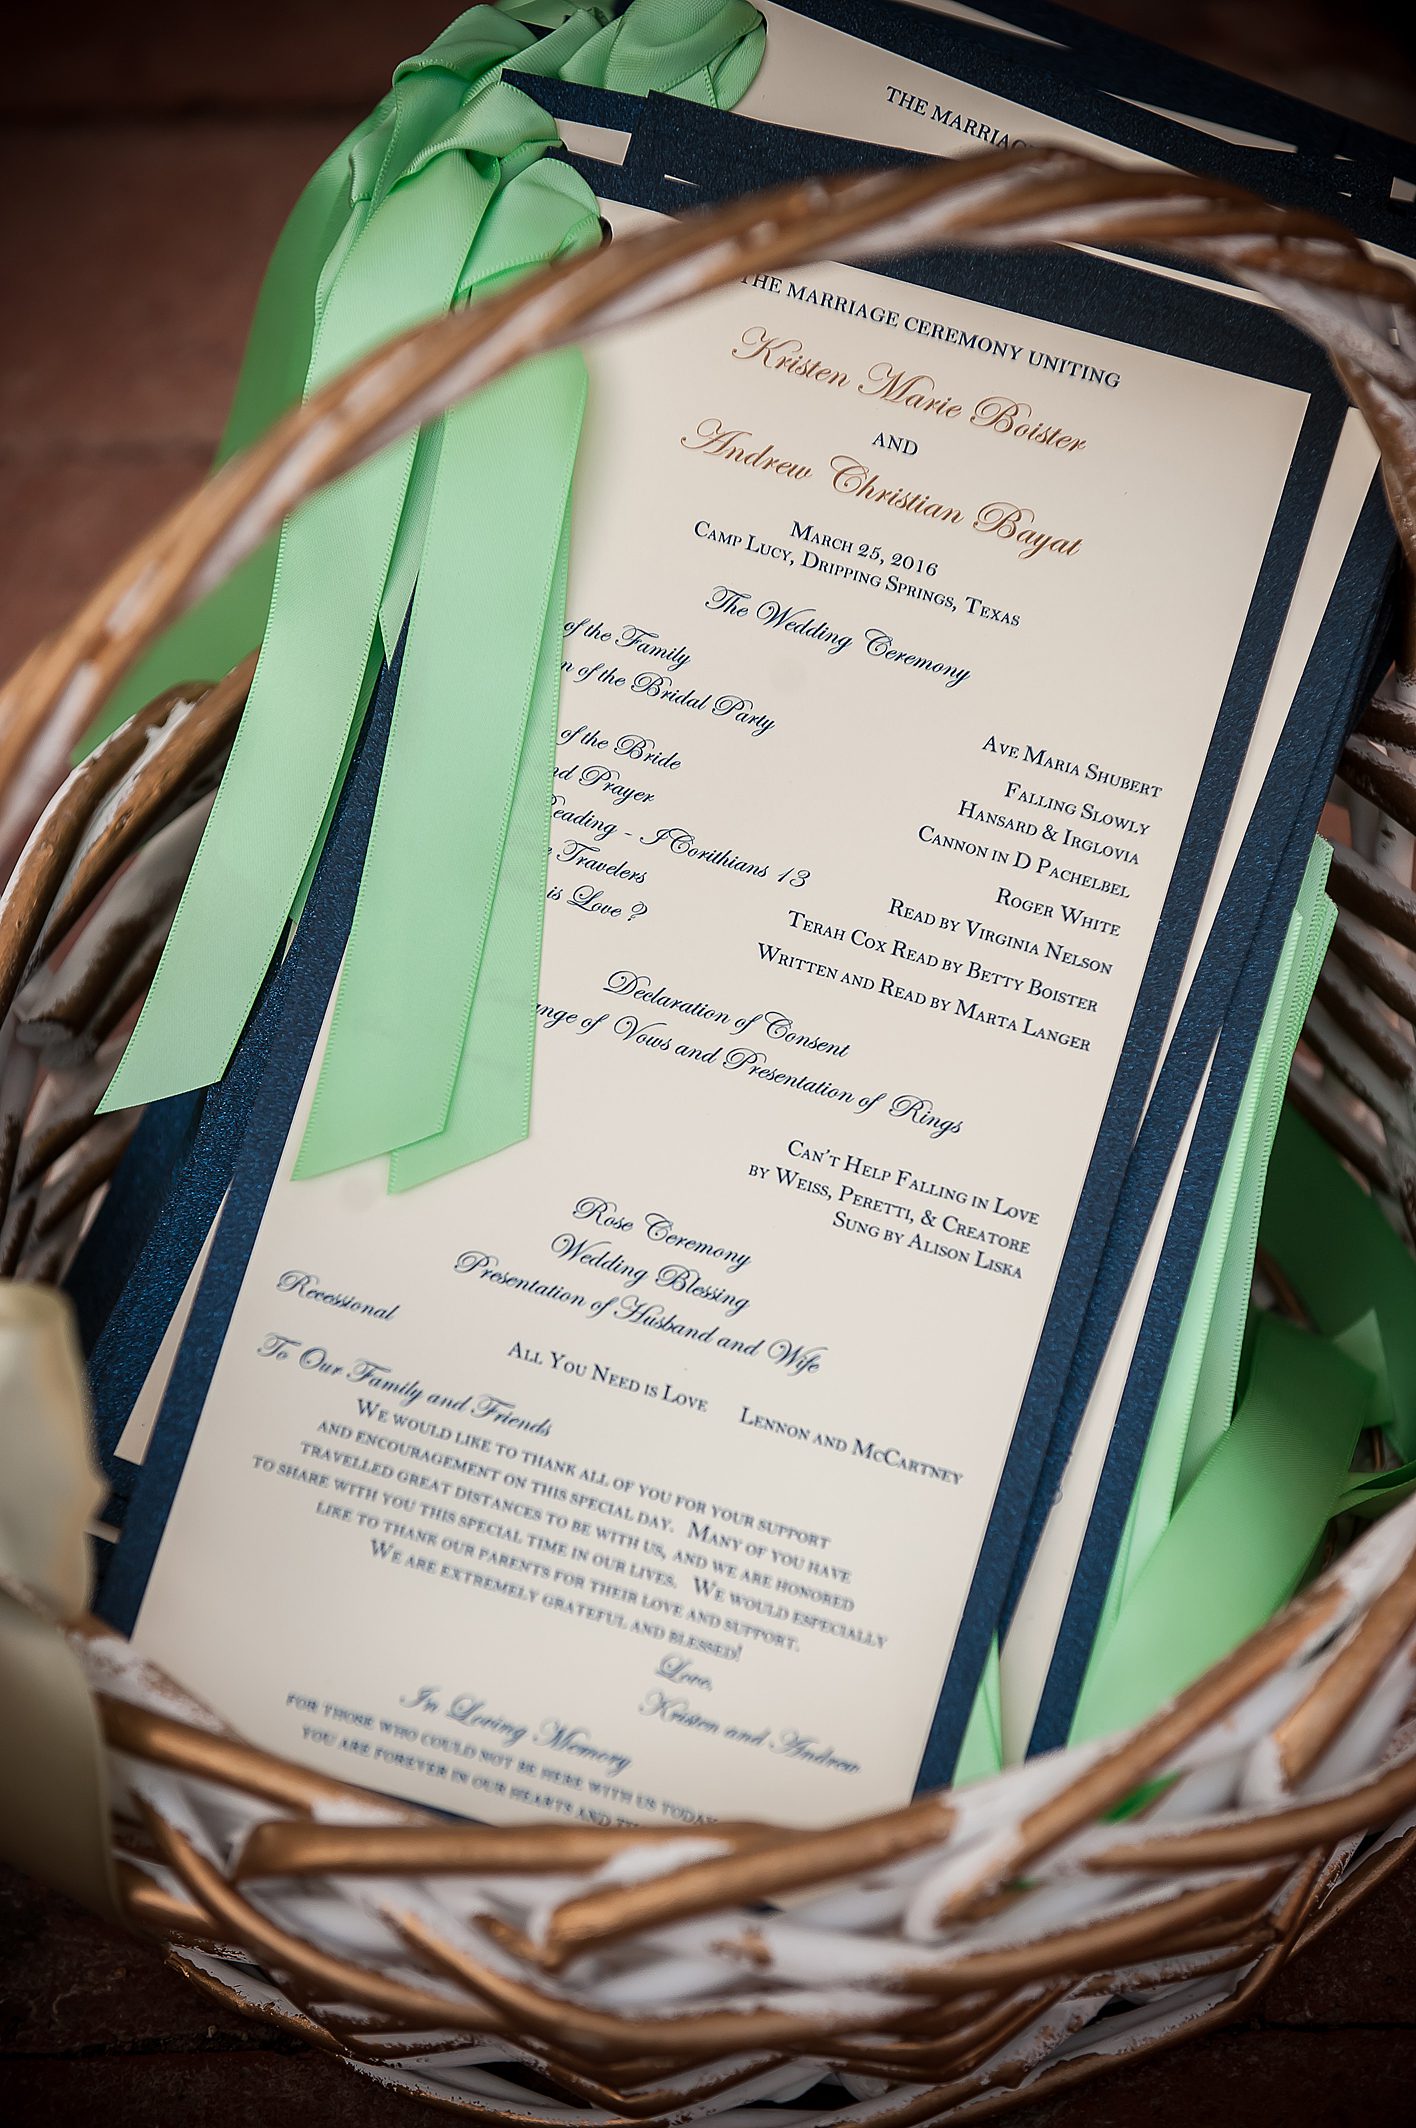 THE MARRIAGE
THE MARRIAGE CEREMONY UNITING
Kristen Marie Boister
AND
Andrew Christian Bayat
MARCH 25, 2016
CAMP LUCY, DRIPPING SPRINGS, TEXAS
The Wedding Ceremony
of the Family
of the Bridal Party
AVE MARIA SHUBERT
FALLING SLOWLY
HANSARD & IRGLOVIA
of the Bride
CANNON IN D PACHELBEL
Prayer
ROGER WHITE
- I Corithians 13
READ BY VIRGINIA NELSON
Travelers
TERAH COX READ BY BETTY BOISTER
is Love ?
WRITTEN AND READ BY MARTA LANGER
Declaration of Consent
of Vows and Presentation of Rings
CAN'T HELP FALLING IN LOVE
BY WEISS, PERETTI, & CREATORE
SUNG BY ALISON LISKA
Rose Ceremony
Wedding Blessing
Presentation of Husband and Wife
Recessional
ALL YOU NEED IS LOVE LENNON AND MCCARTNEY
To Our Family and Friends
WE WOULD LIKE TO THANK ALL OF YOU FOR YOUR SUPPORT
AND ENCOURAGEMENT ON THIS SPECIAL DAY. MANY OF YOU HAVE
TRAVELLED GREAT DISTANCES TO BE WITH US, AND WE ARE HONORED
TO SHARE WITH YOU THIS SPECIAL TIME IN OUR LIVES. WE WOULD ESPECIALLY
LIKE TO THANK OUR PARENTS FOR THEIR LOVE AND SUPPORT.
WE ARE EXTREMELY GRATEFUL AND BLESSED!
Love,
Kristen and Andrew
In Loving Memory
FOR THOSE WHO COULD NOT BE HERE WITH US TODAY
YOU ARE FOREVER IN OUR HEARTS AND